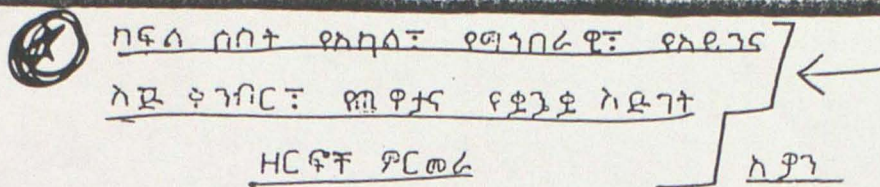 ክፍል ሰባት የአካል፣ የማኅበራዊ፣ የአይንና
እጅ ቅንብር፣ የጨዋታና የቋንቋ እድገት
ዘርፎች ምርመራ